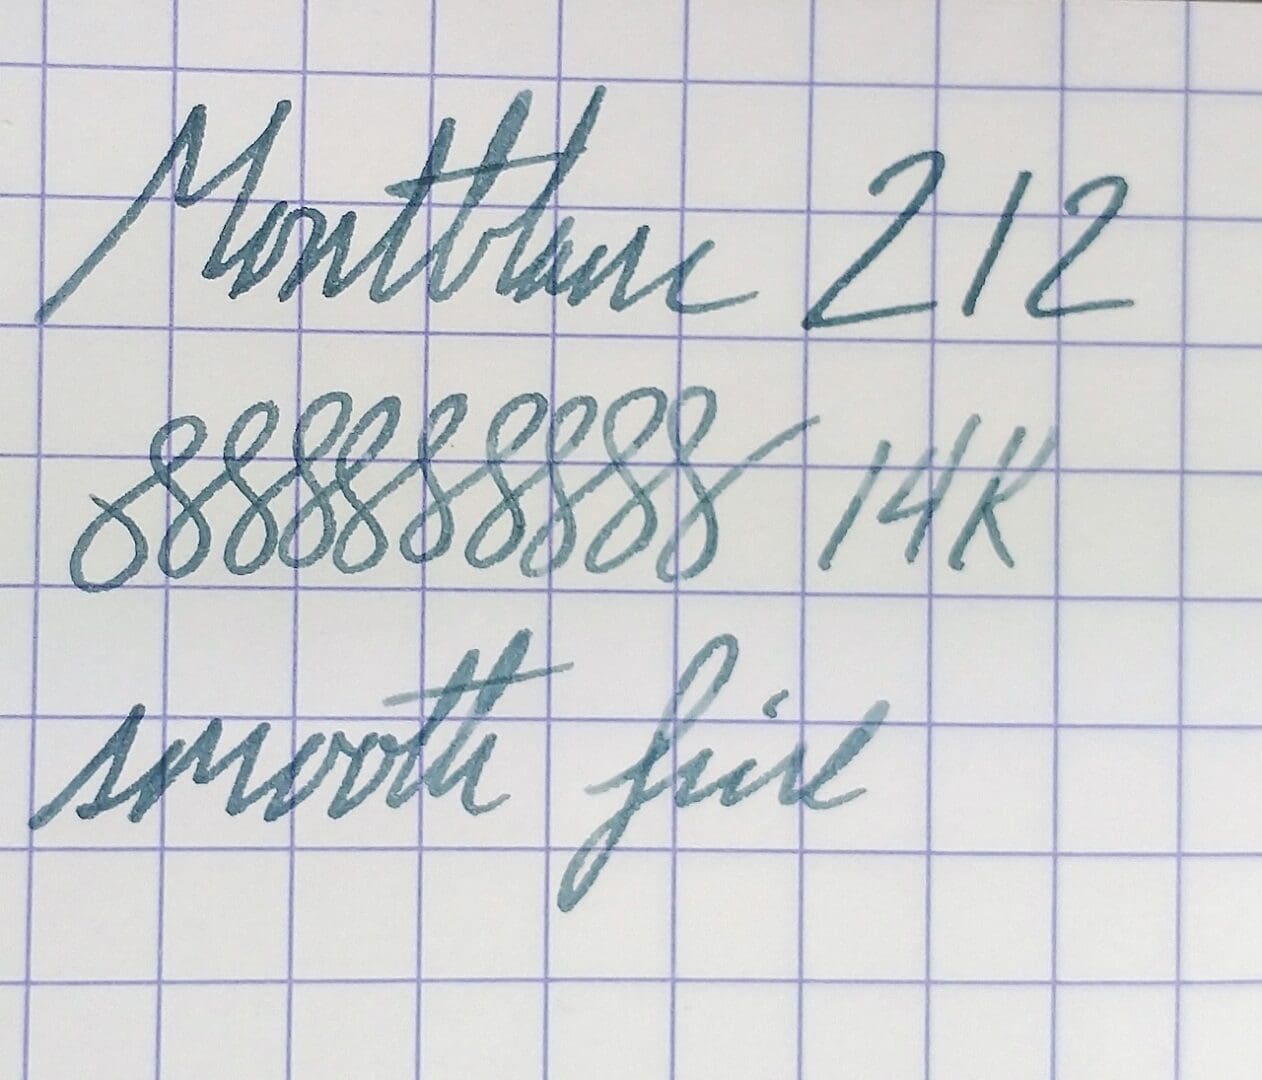 Montblanc 212
888888888 14K
smooth fine